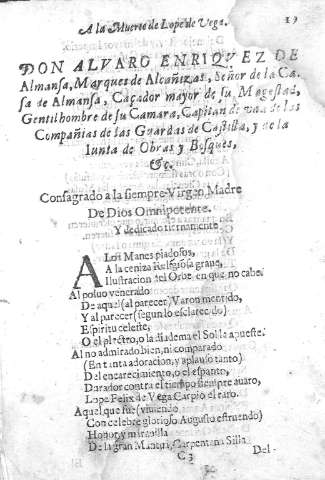 A la Muerte de Lope de Vega. 19
DON ALVARO ENRIQVEZ DE
Almansa, Marques de Alcañizas, Señor de la Ca-
sa de Almansa, Caçador mayor de su Magestad,
Gentilhombre de su Camara, Capitan de vna de las
Compañias de las Guardas de Castilla, y de la
Iunta de Obras y Bosques,
&c.
Consagrado a la siempre Virgen Madre
De Dios Omnipotente.
Y dedicado tiernamente
A Los Manes piadosos,
A la ceniza Religiosa graue,
Ilustracion del Orbe en que no cabe.
Al poluo venerado
De aquel (al parecer) Varon mentido,
Y al parecer (segun lo esclarecido)
Espiritu celeste,
O el plectro, o la diadema el Sol le apueste.
Al no admirado bien, ni comparado
(En tanta adoracion, y aplauso tanto)
Del encarecimiento, o el espanto,
Durador contra el tiempo siempre auaro,
Lope Felix de Vega Carpio el raro.
Aquel que fue (viuiendo
Con celebre glorioso Augusto estruendo)
Honor, y marauilla
De la gran Mantua Carpentana Silla
C 3 Del-